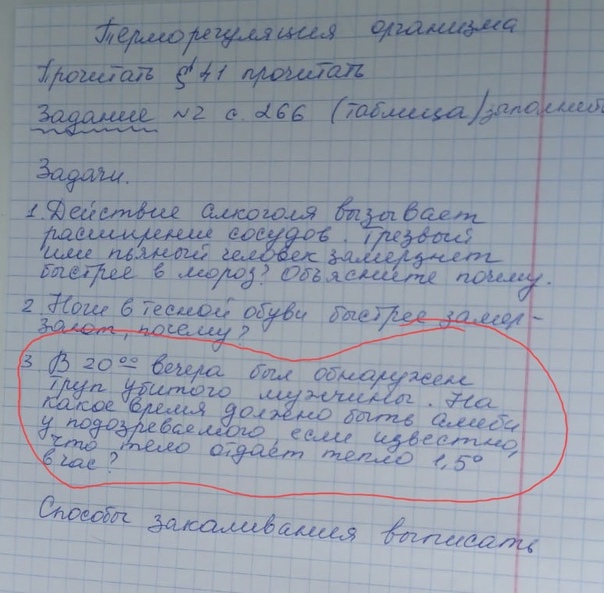 Терморегуляция организма
Прочитать § 41 прочитать
Задание №2 с. 266 (таблица) заполнить
Задачи.
1. Действие алкоголя вызывает
расширение сосудов. Трезвый
или пьяный человек замерзнет
быстрее в мороз? Объясните почему.
2. Ноги в тесной обуви быстрее замер-
зают, почему?
3 В 20⁰⁰ вечера был обнаружен
труп убитого мужчины. На
какое время должно быть алиби
у подозреваемого, если известно,
что тело отдает тепло 1,5°
в час?
Способы закаливания выписать